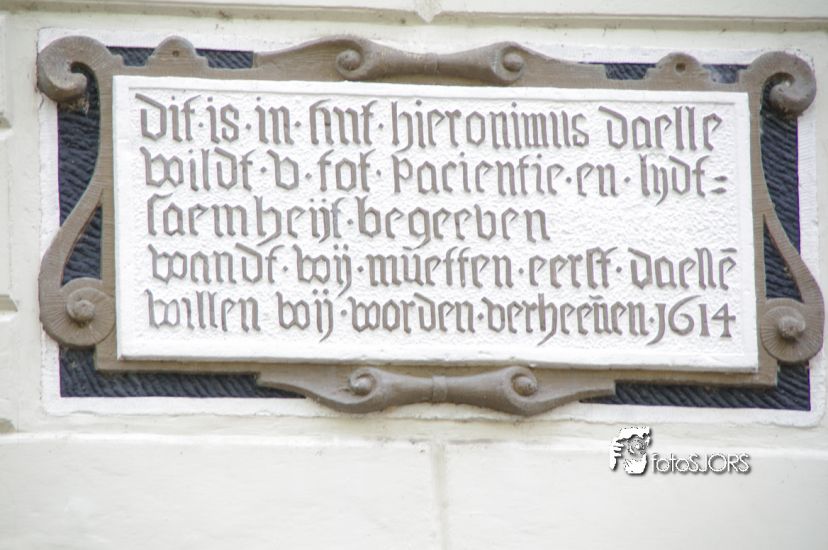 dit·is·in·sint·hieronimus daelle
wildt·v·tot·pacientie·en·lydt=
saemheijt·begeeven
wandt·wij·mūetten·eerst·daellē
willen wij·worden·verheeñen·1614
fotoSJORS